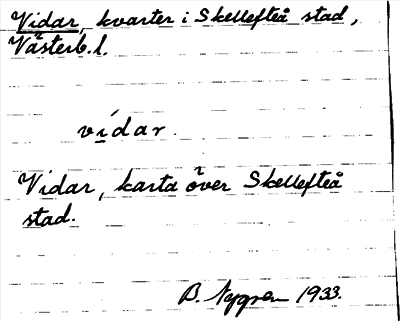 Vidar, kvarter i Skellefteå stad,
Västerb.l.
vídar.
Vidar, karta över Skellefteå
stad.
B. Nygren 1933.